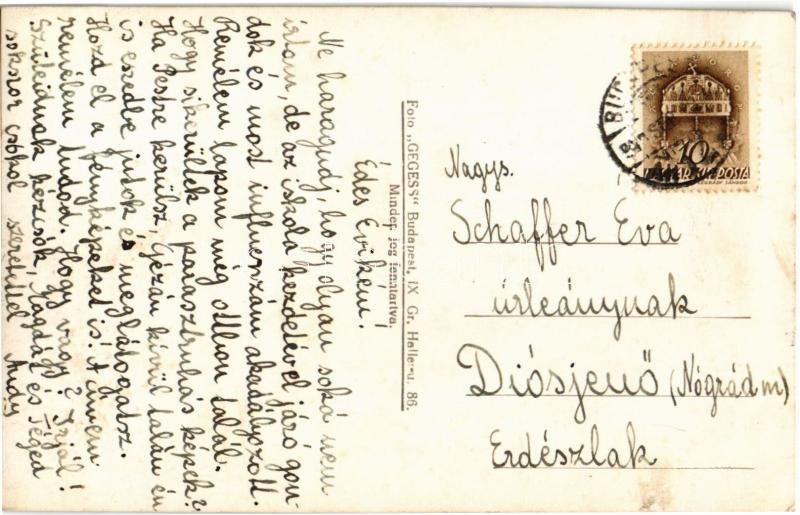 Édes Evikém!
Ne haragudj, hogy olyan soká nem
írtam, de az iskola kezdetével járó gon-
dok és most influenzám akadályozott.
Remélem lapom még otthon talál.
Hogy sikerültek a parasztruhás képek?
Ha Pestre kerülsz, Gézán kívül talán én
is eszedbe jutok és meglátogatsz.
Hozd el a fényképeket is! A címem
remélem tudod. Hogy vagy? Írjál!
Szüleidnek kézcsók, Magdát és Téged
sokszor csókol szeretettel Andy
Foto „GEGESS“ Budapest, IX Gr. Haller-u. 86.
Minden jog fenntartva.
BUDAPEST
10
MAGYAR KIR. POSTA
LÉGRÁDY SÁNDOR
Nagys.
Schaffer Éva
úrleánynak
Diósjenő (Nógrád m)
Erdészlak